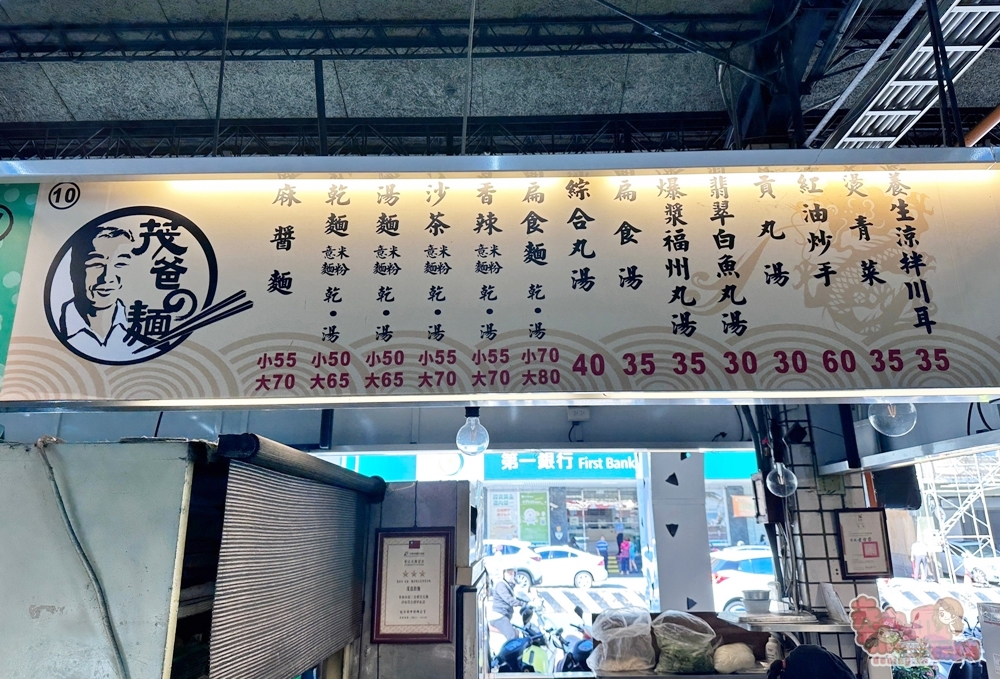 10
茂爸の麵
麻醬麵
小55
大70
乾麵 意麵 米粉 乾•湯
小50
大65
湯麵 意麵 米粉 乾•湯
小50
大65
沙茶 意麵 米粉 乾•湯
小55
大70
香辣 意麵 米粉 乾•湯
小55
大70
扁食麵 乾•湯
小70
大80
綜合丸湯
40
扁食湯
35
爆漿福州丸湯
35
翡翠白魚丸湯
30
貢丸湯
30
紅油炒手
60
燙青菜
35
養生涼拌川耳
35
第一銀行 First Bank